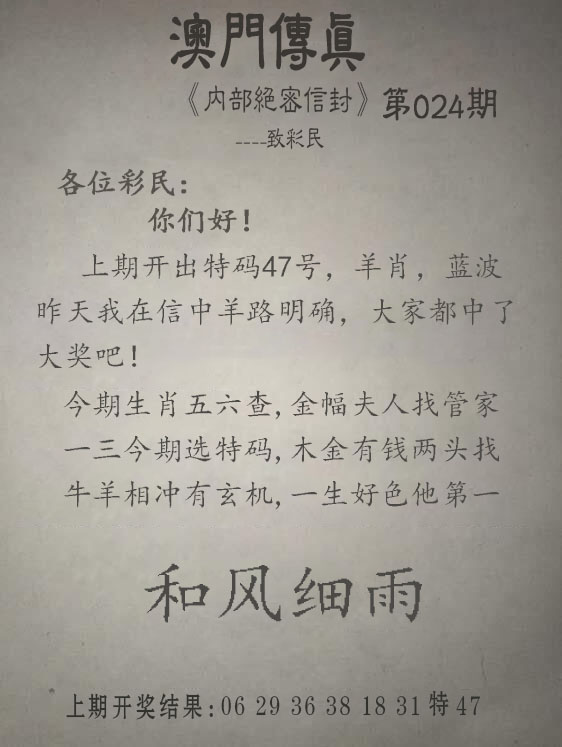 澳門傳眞
《内部絕密信封》第024期
----致彩民
各位彩民:
你们好!
上期开出特码47号，羊肖，蓝波
昨天我在信中羊路明确，大家都中了
大奖吧!
今期生肖五六查,金幅夫人找管家
一三今期选特码,木金有钱两头找
牛羊相冲有玄机,一生好色他第一
和风细雨
上期开奖结果:06 29 36 38 18 31特47